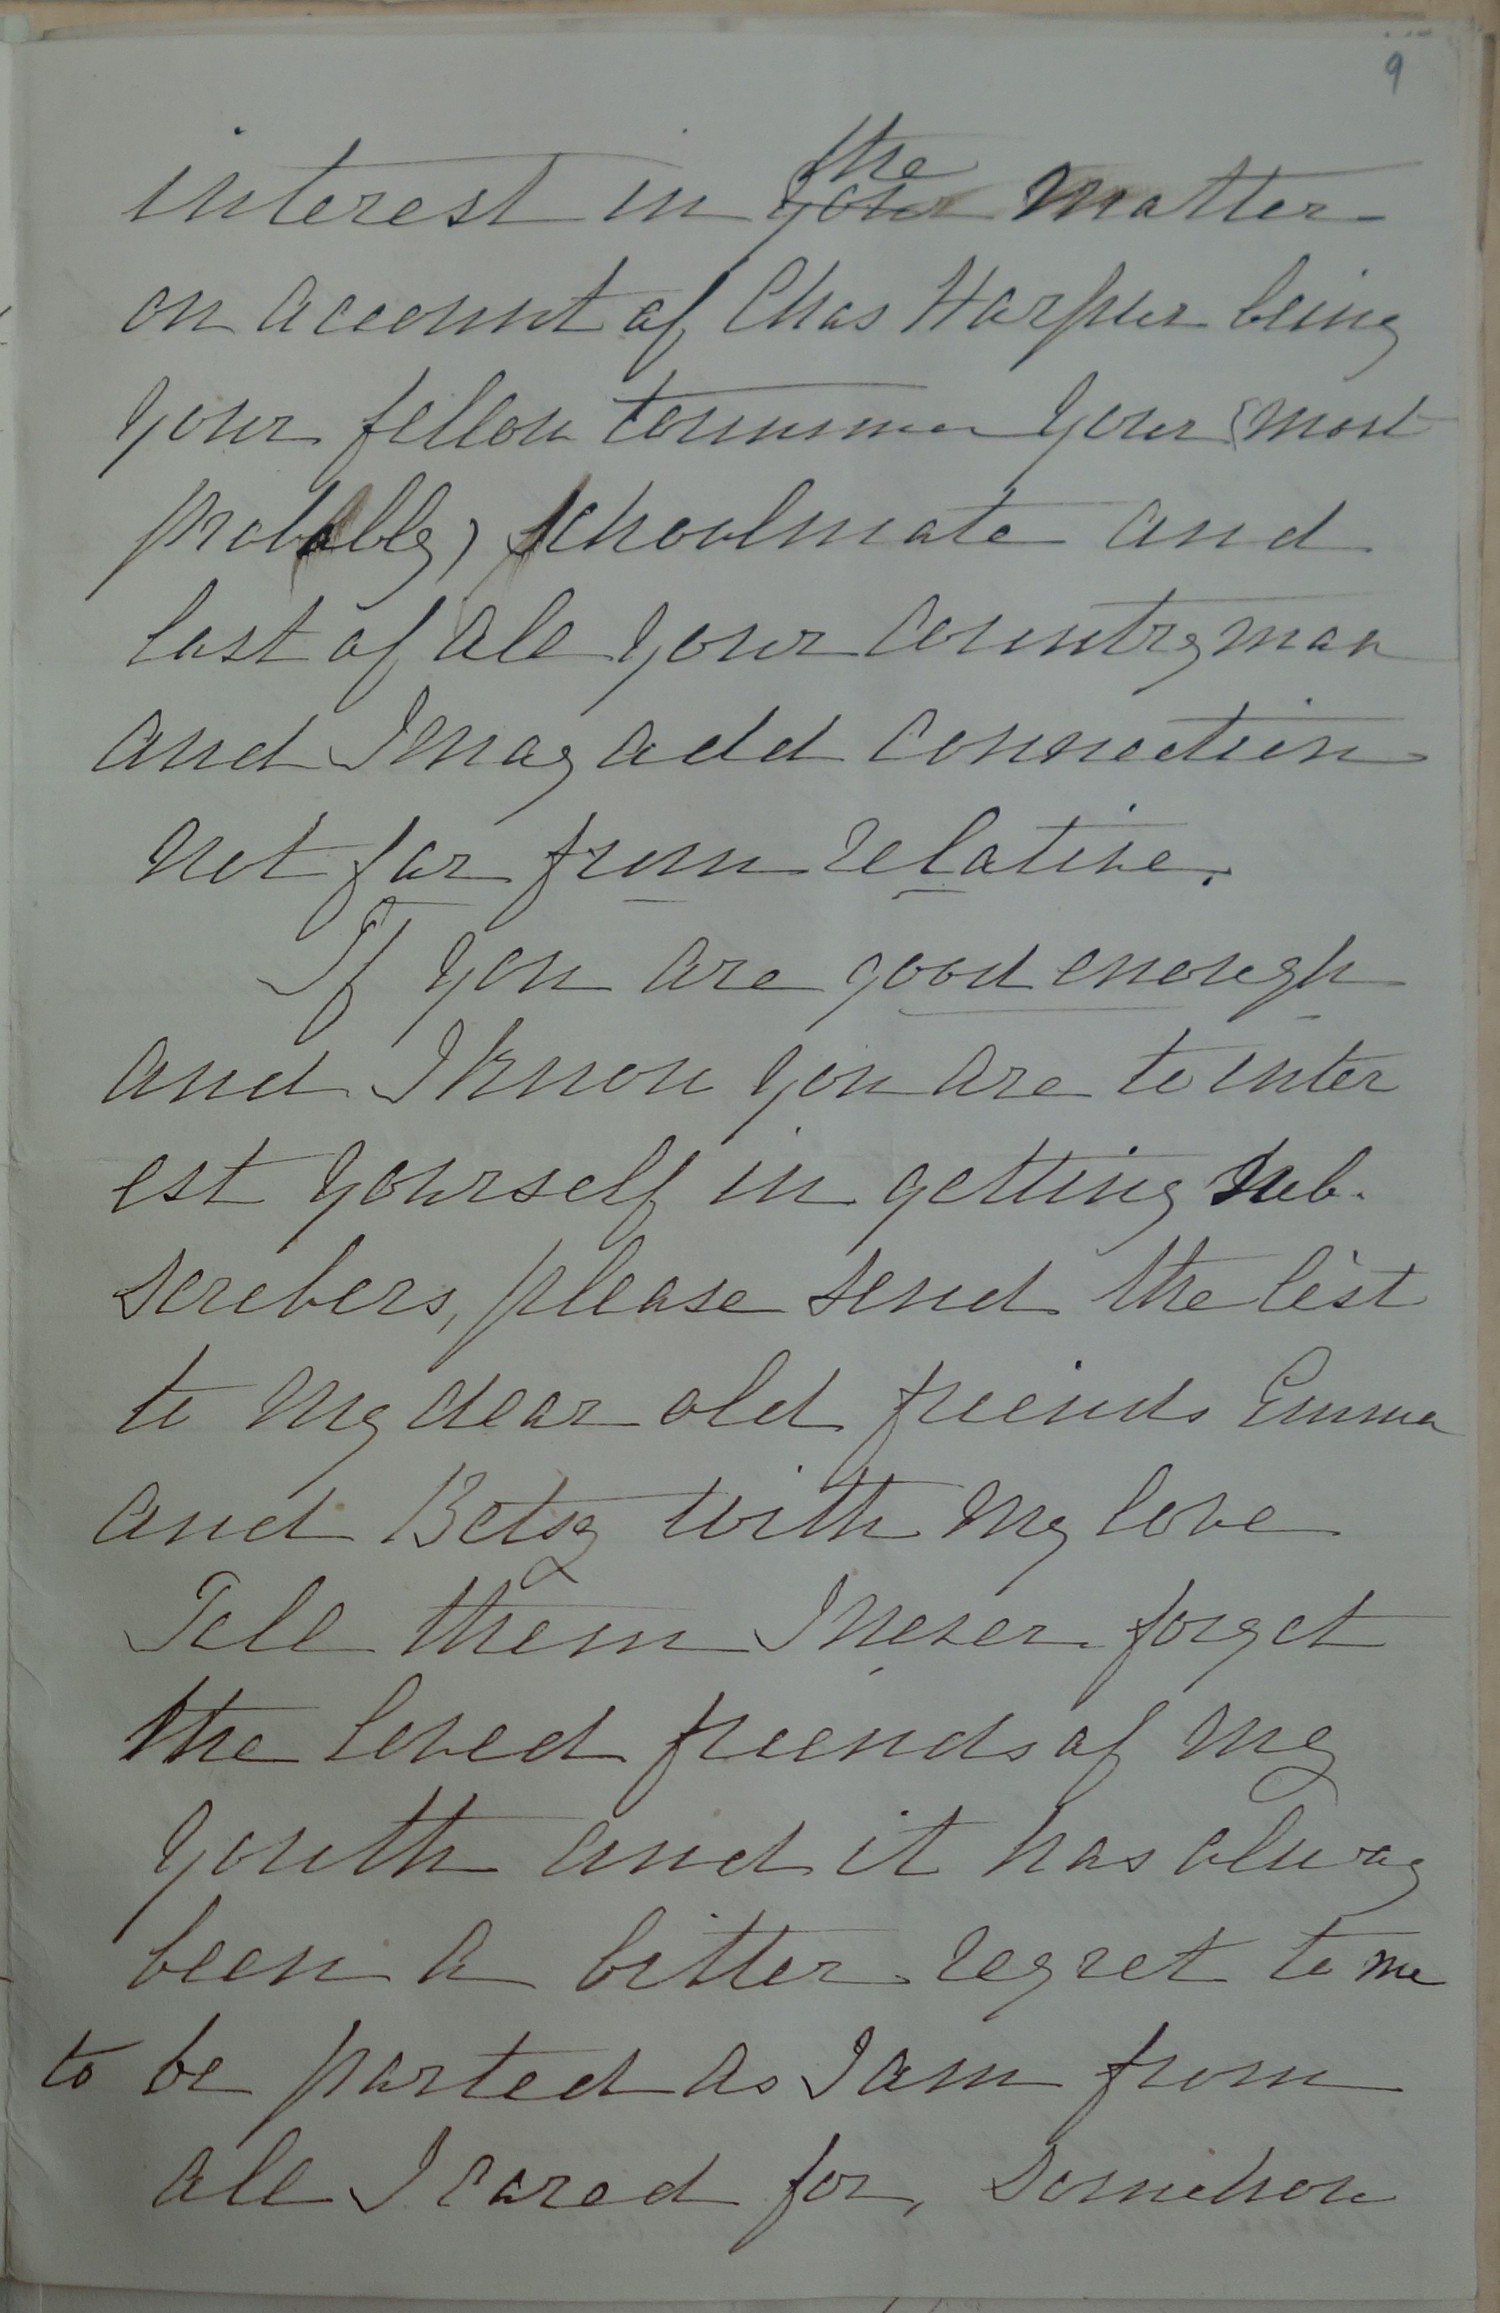 9
interest in the your matter
on account of Chas Harpur being
your fellow townsman your (most
probably) schoolmate and
last of all your countryman
and I may add connection
not far from relative.
If you are good enough
and I know you are to inter
est yourself in getting sub-
scribers, please send the list
to my dear old friends Emma
and Betsy with my love
Tell them I never forget
the loved friends of my
youth and it has alway
been a bitter regret to me
to be parted as I am from
all I cared for, somehow